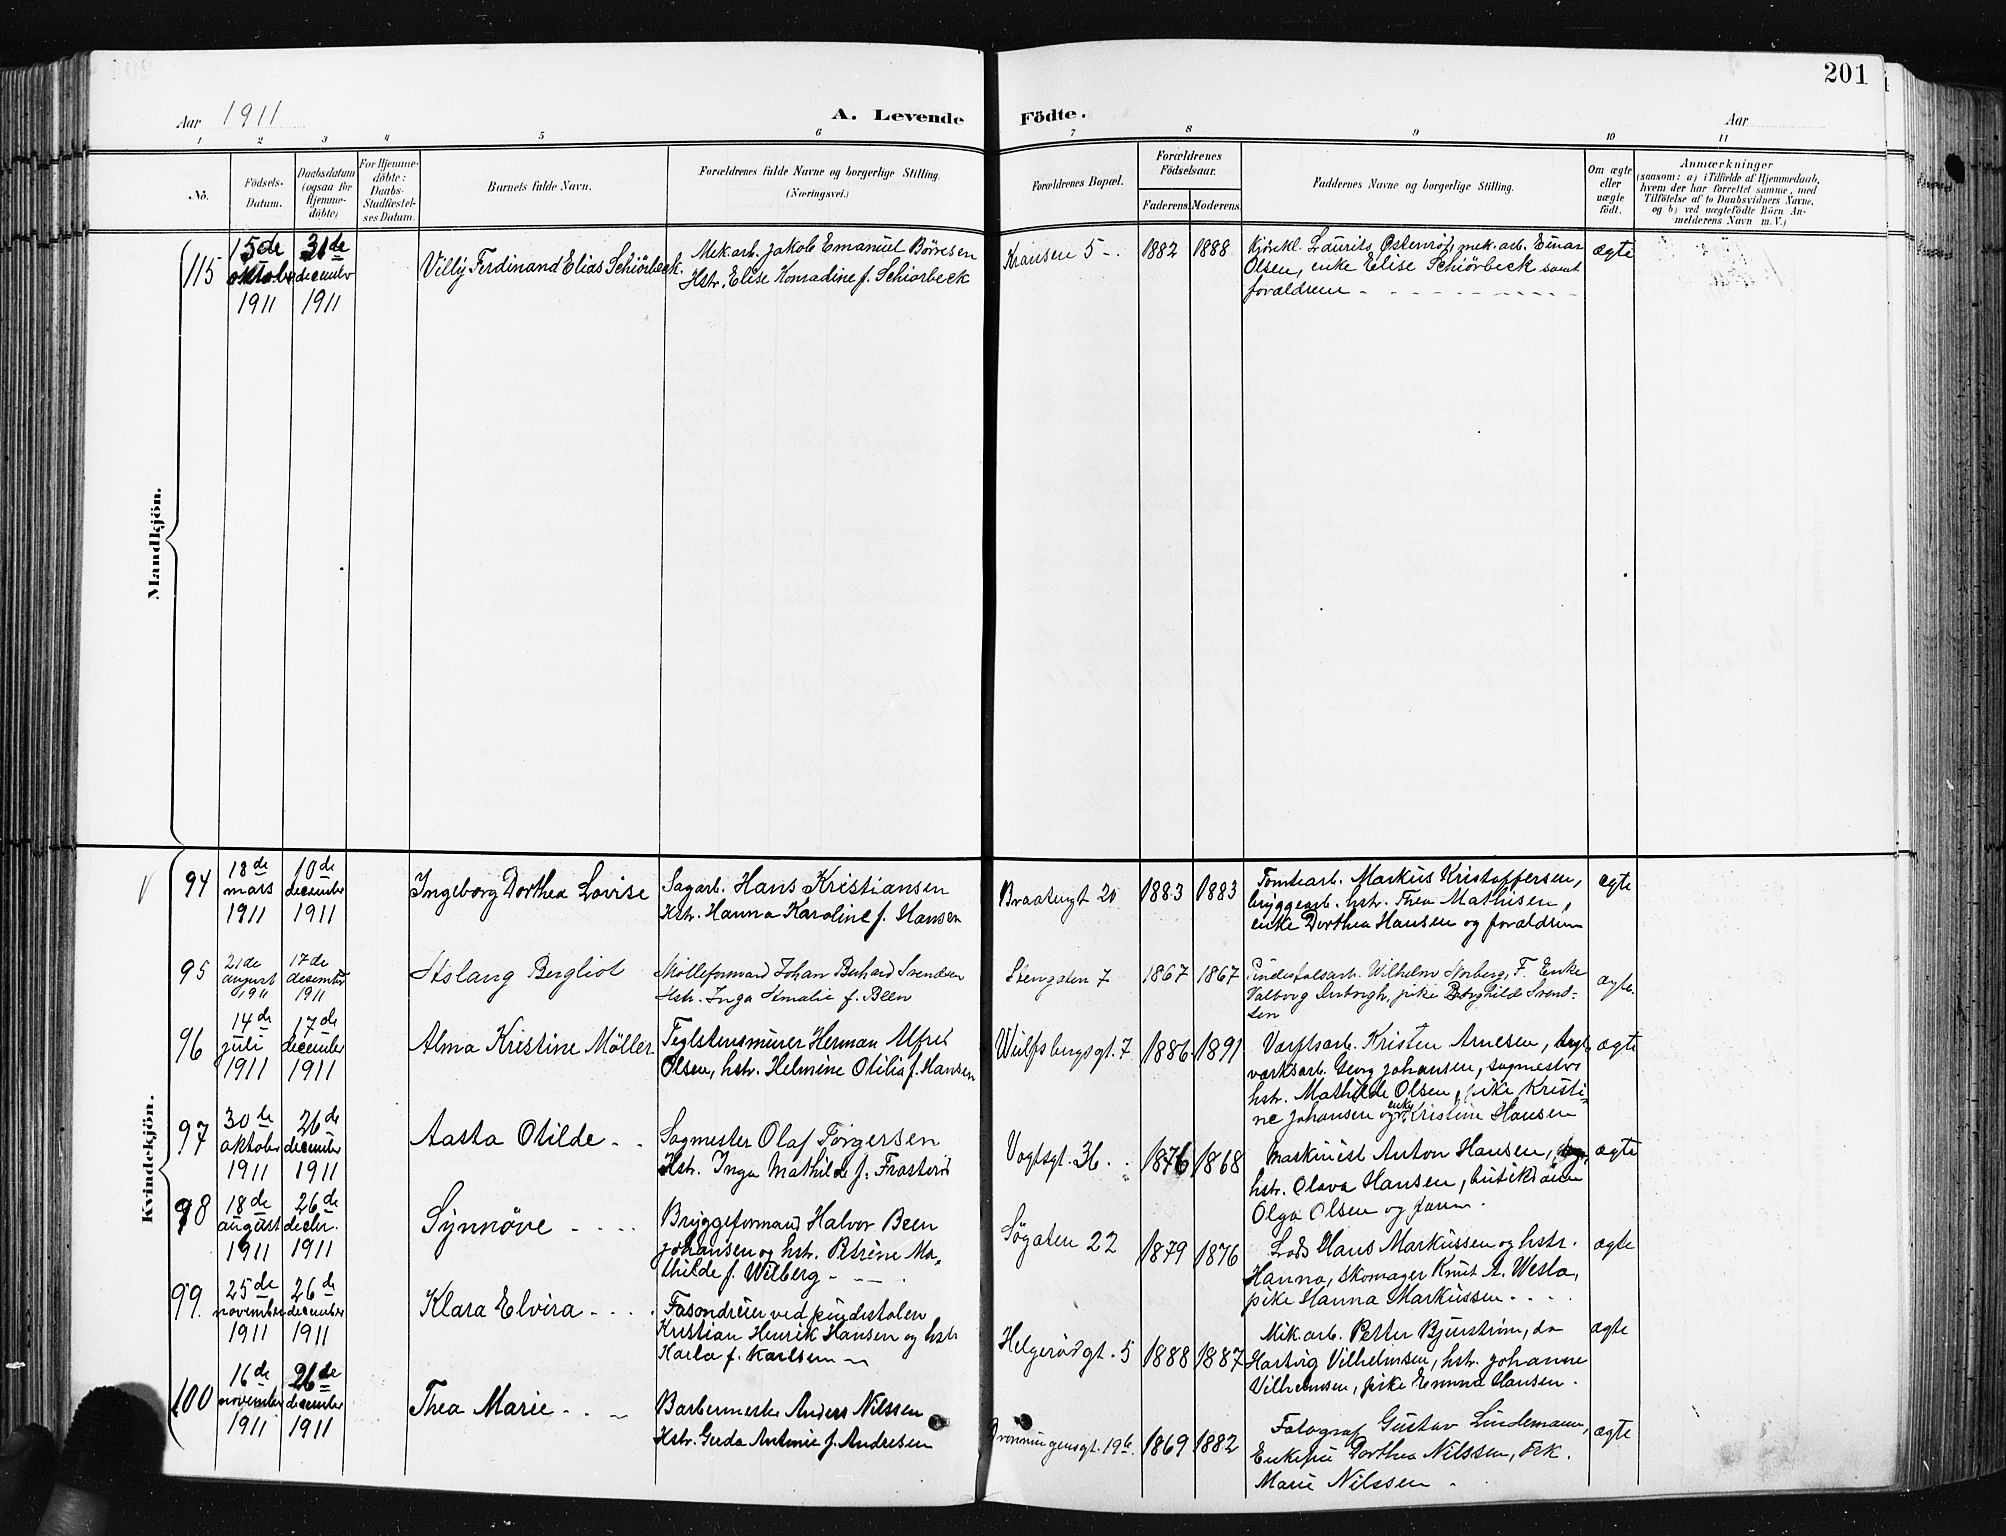 201
Aar 1911
A. Levende Födte.
Aar
1 2 3 4 5 6 7 8 9 10 11
Nö.
Födsels-
Datum.
Daabsdatum
(ogsaa for
Hjemme-
döbte)
For Hjemme-
döbte:
Daabs-
Stadfæstel-
ses Datum.
Barnets fulde Navn.
Forældrenes fulde Navne og borgerlige Stilling.
(Næringsvei.)
Forældrenes Bopæl.
Forældrenes
Födselsaar.
Faderens. Moderens.
Faddernes Navne og borgerlige Stilling.
Om ægte
eller
uægte
födt.
Anmærkninger
(saasom: a) i Tilfælde af Hjemmedaab,
hvem der har forrettet samme, med
Tilföielse af to Daabsvidners Navne,
og b) ved uægtefödte Börn An-
melderens Navn m. V.)
Mandkjön.
115
15de
oktober
1911
31de
december
1911
Villy Ferdinand Elias Schiörbeck.
Mek.arb. Jakob Emanuel Böresen
Hstr. Elise Konradine f. Schiörbeck
Kransen 5 -.
1882 1888
Laurits Østenrö, mek. arb. Einar
Olsen, enke Elise Schiörbeck samt
forældrene
ægte
Kvindekjön.
94
18de
mars
1911
10de
december
1911
Ingeborg Dorthea Lovise
Sagarb. Hans Kristiansen
Hstr. Hanna Karoline f. Hansen
Braatengt 20
1883 1883
Tomtearb. Markus Kristoffersen,
bryggearb. hstr. Thea Mathisen,
enke Dorthea Hansen og forældrene
ægte
95
21de
august
1911
17de
desember
1911
Aslaug Bergliot
Mölleformand Johan Berhard Svendsen
Hstr. Inga Amalie f. Been
Steengaten 7
1867 1867
Wilhelm Norberg, F. Enke
Valborg pike Borghild Svend-
sen
ægte.
96
14de
juli
1911
17de
december
1911
Alma Kristine Möller
Teglstensmurer Herman Alfred
Olsen, hstr. Helmine Otilia f. Hansen
Wulfsbergsgt. 7
1886 1891
Værftsarb. Kristen Arnesen,
værksarb. Georg Johansen, sagmester
hstr. Mathilde Olsen, pike Kristi-
ne Johansen og enke Kristine Hansen
ægte
97
30te
oktober
1911
26de
december
1911
Aasta Otilde - -
Sagmester Olaf Torgersen
Hstr. Inga Mathilde f. Frosterö
Vogtsgt. 36.
1876 1868
Maskinist Anton Hansen,
hstr. Olava Hansen, butikdame
Olga Olsen og faren.
ægte
98
18de
august
1911
26de
decbr.
1911
Synnöve - - - -
Bryggeformand Halvor Been
Johansen og hstr. Petrine Ma-
thilde f. Wilberg -
Søgaten 22
1879 1876
Lods Hans Markussen og hstr.
Hanna, skomager Knut A. Westa,
pike Hanna Markussen - - - -
ægte
99.
25de
november
1911
26de
december
1911
Klara Elvira - - - -
Fasondreier ved pindestolen
Kristian Henrik Hansen og hstr
Karla f. Karlsen -
Helgerödgt. 5
1888 1887
Mek.arb. Petter Bjurström, do
Hartvig Vilhelmsen, hstr. Johanne
Vilhelmsen, pike Emma Hansen.
ægte
100
16de
november
1911
26de
december
1911
Thea Marie - - -
Barbermester Anders Nilssen
Hstr. Gerda Antonie f. Andresen
Dronningensgt. 19b.
1869 1882
Fotograf Gustav Lindemann,
Enkefru Dorthea Nilssen, Frk.
Marie Nilssen.
ægte